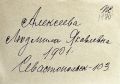 Алексеева
Людмила Яковлевна
1901.
Севастопольск-103